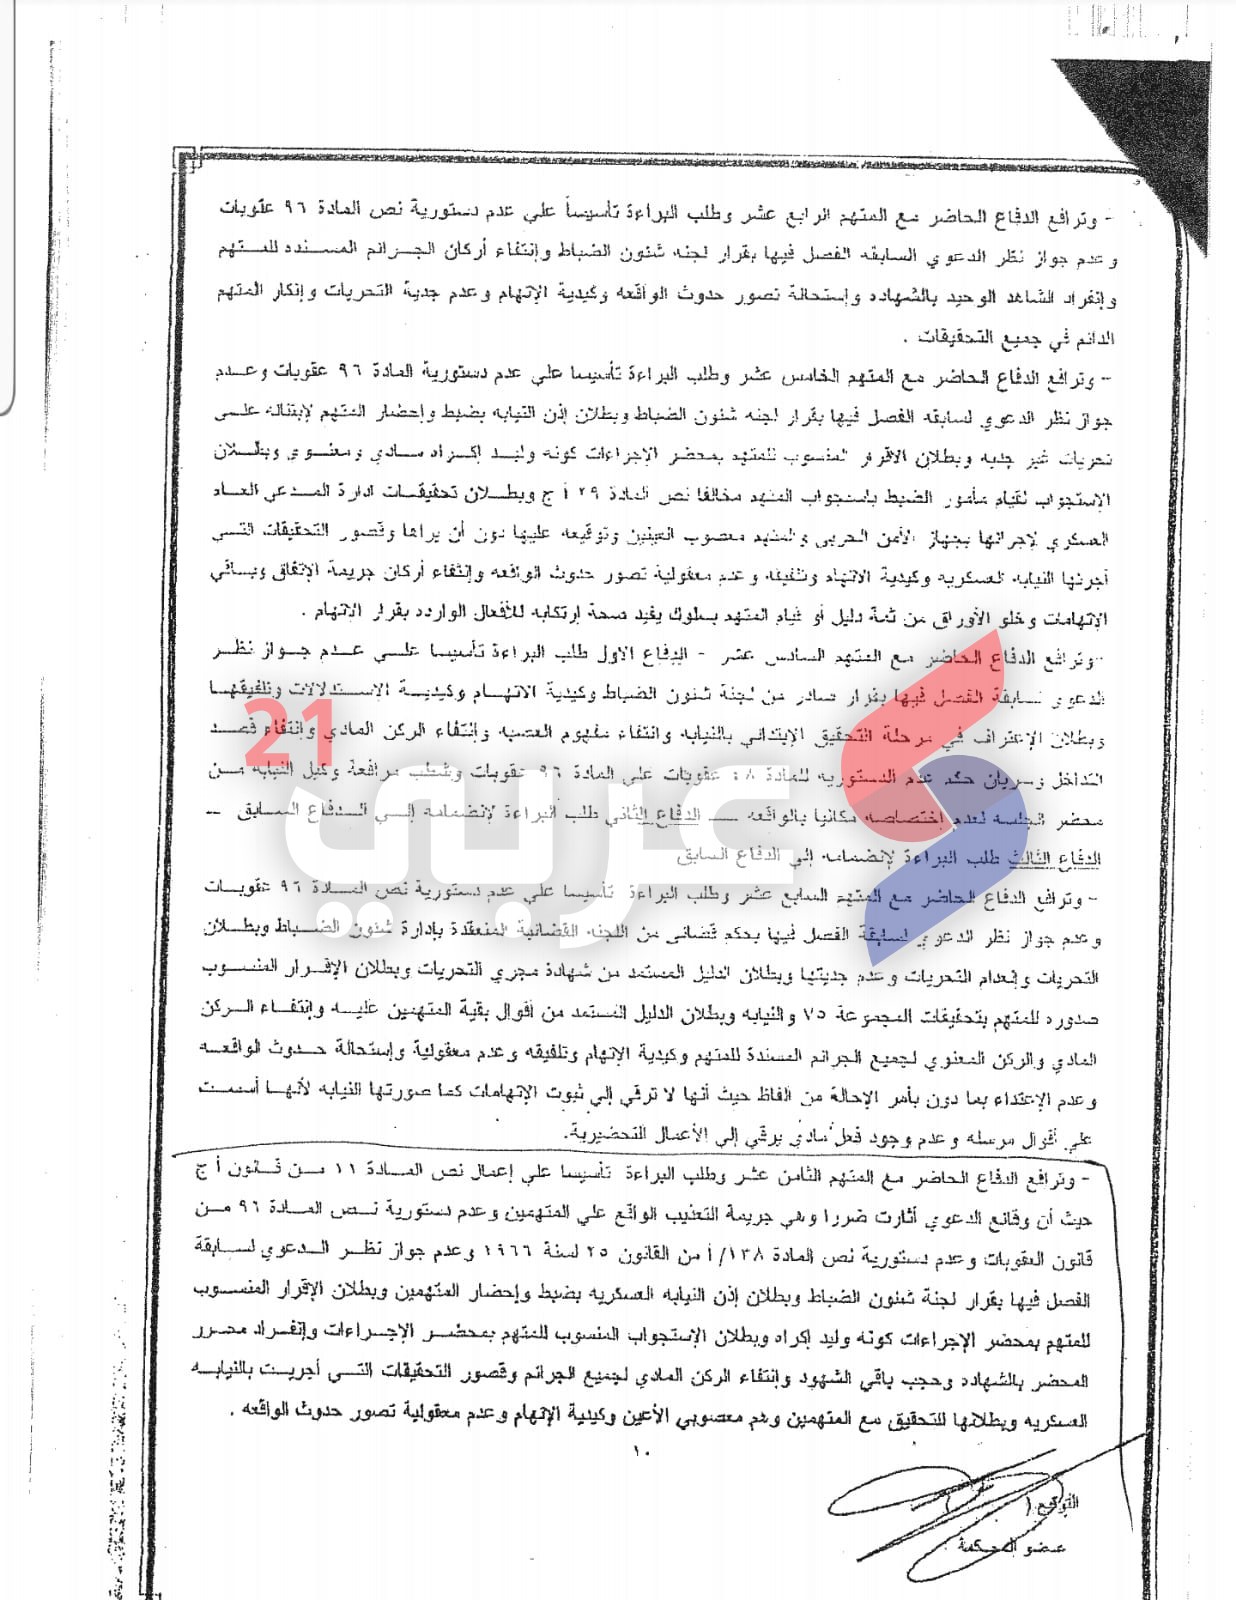 - وترافع الدفاع الحاضر مع المتهم الرابع عشر وطلب البراءة تأسيساً علي عدم دستورية نص المادة ٩٦ عقوبات
وعدم جواز نظر الدعوي السابقه الفصل فيها بقرار لجنه شئون الضباط وإنتفاء أركان الجرائم المسنده للمتهم
وإنفراد الشاهد الوحيد بالشهاده وإستحالة تصور حدوث الواقعه وكيدية الإتهام وعدم جدية التحريات وإنكار المتهم
الدائم في جميع التحقيقات .
- وترافع الدفاع الحاضر مع المتهم الخامس عشر وطلب البراءة تأسيسا علي عدم دستورية المادة ٩٦ عقوبات وعدم
جواز نظر الدعوي لسابقه الفصل فيها بقرار لجنه شئون الضباط وبطلان إذن النيابه بضبط وإحضار المتهم لإبتنائه علي
تحريات غير جديه وبطلان الاقرار المنسوب للمتهم بمحضر الإجراءات كونه وليد إكراه مادي ومعنوي وبطلان
الإستجواب لقيام مأمور الضبط باستجواب المتهم مخالفا نص المادة ٢٩ أ ج وبطلان تحقيقات ادارة المدعي العام
العسكري لإجرائها بجهاز الأمن الحربي والمتهم معصوب العينين وتوقيعه عليها دون أن يراها وقصور التحقيقات التي
أجرتها النيابه العسكريه وكيدية الاتهام وتلفيقه وعدم معقولية تصور حدوث الواقعه وإنتفاء أركان جريمة الإتفاق وباقي
الإتهامات وخلو الأوراق من ثمة دليل أو قيام المتهم بسلوك يفيد صحة ارتكابه للأفعال الوارده بقرار الإتهام .
- وترافع الدفاع الحاضر مع المتهم السادس عشر - الدفاع الاول طلب البراءة تأسيسا علي عدم جواز نظر
الدعوي لسابقة الفصل فيها بقرار صادر من لجنة شئون الضباط وكيدية الاتهام وكيدية الإستدلالات وتلفيقها
وبطلان الإعتراف في مرحلة التحقيق الإبتدائي بالنيابه وانتفاء مفهوم العصبه وإنتفاء الركن المادي وإنتفاء قصد
التداخل وسريان حكم عدم الدستوريه للمادة ٤٨ عقوبات علي المادة ٩٦ عقوبات وشطب مرافعة وكيل النيابه من
محضر الجلسه لعدم إختصاصه مكانيا بالواقعه ــ الدفاع الثاني طلب البراءة لإنضمامه إلي الدفاع السابق ــ
الدفاع الثالث طلب البراءة لإنضمامه إلي الدفاع السابق
- وترافع الدفاع الحاضر مع المتهم السابع عشر وطلب البراءة تأسيسا علي عدم دستورية نص المادة ٩٦ عقوبات
وعدم جواز نظر الدعوي لسابقة الفصل فيها بحكم قضائي من اللجنه القضائية المنعقدة بإدارة شئون الضباط وبطلان
التحريات وإنعدام التحريات وعدم جديتها وبطلان الدليل المستمد من شهادة مجري التحريات وبطلان الإقرار المنسوب
صدوره للمتهم بتحقيقات المجموعة ٧٥ والنيابه وبطلان الدليل المستمد من أقوال بقية المتهمين عليه وإنتفاء الركن
المادي والركن المعنوي لجميع الجرائم المسندة للمتهم وكيدية الإتهام وتلفيقه وعدم معقولية وإستحالة حدوث الواقعه
وعدم الإعتداء بما دون بأمر الإحالة من الفاظ حيث أنها لا ترقي إلي ثبوت الإتهامات كما صورتها النيابه لأنها أسست
علي أقوال مرسله وعدم وجود فعل مادي يرقي إلي الأعمال التحضيرية.
- وترافع الدفاع الحاضر مع المتهم الثامن عشر وطلب البراءة تأسيسا علي إعمال نص المادة ١١ من قانون أ ج
حيث أن وقائع الدعوي أثارت ضررا وهي جريمة التعذيب الواقع علي المتهمين وعدم دستورية نص المادة ٩٦ من
قانون العقوبات وعدم دستورية نص المادة ١٣٨/ أ من القانون ٢٥ لسنة ١٩٦٦ وعدم جواز نظر الدعوي لسابقة
الفصل فيها بقرار لجنة شئون الضباط وبطلان إذن النيابه العسكريه بضبط وإحضار المتهمين وبطلان الإقرار المنسوب
للمتهم بمحضر الإجراءات كونه وليد إكراه وبطلان الإستجواب المنسوب للمتهم بمحضر الإجراءات وإنفراد محرر
المحضر بالشهاده وحجب باقي الشهود وإنتفاء الركن المادي لجميع الجرائم وقصور التحقيقات التي أجريت بالنيابه
العسكريه وبطلانها للتحقيق مع المتهمين وهم معصوبي الأعين وكيدية الإتهام وعدم معقولية تصور حدوث الواقعه .
١٠
التوقيع (
عضو المحكمة
عربي 21